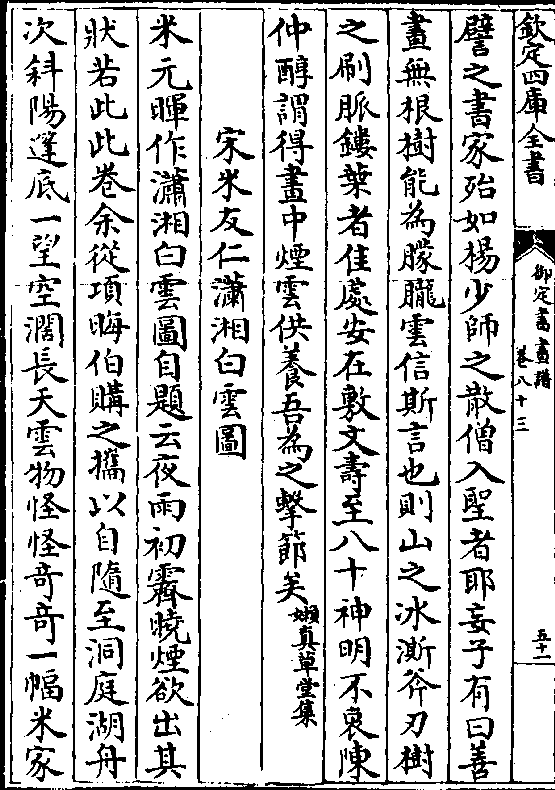 欽定四庫全書
御定書畫譜
卷八十三
五十一
譬之書家殆如楊少師之散僧入聖者耶妄子有曰善
畫無根樹能為朦朧雲信斯言也則山之冰澌斧刃樹
之刷脈鏤葉者佳處安在敷文壽至八十神明不衰陳
仲醇謂得畫中煙雲供養吾為之擊節矣嬾真草堂集
宋米友仁瀟湘白雲圖
米元暉作瀟湘白雲圖自題云夜雨初霽曉煙欲出其
狀若此此卷余從項晦伯購之攜以自隨至洞庭湖舟
次斜陽篷底一望空濶長天雲物怪怪奇奇一幅米家